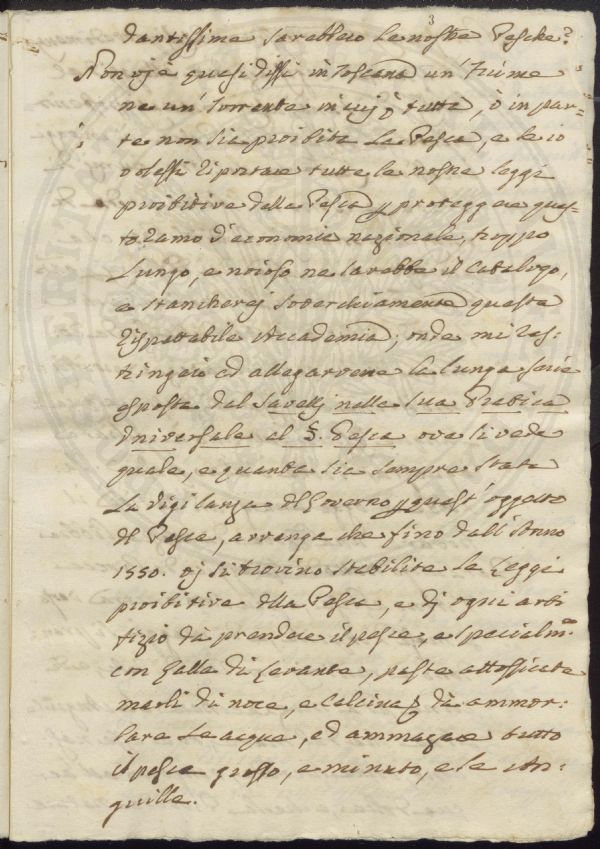 3
dantissime sarebbero le nostre Pesche?
Non vj è quasi dissi in Toscana un' Fiume
ne un' Torrente in cuj ò tutta, ò in par=
te non sia proibita la Pesca, e se io
volessi riportare tutte le nostre leggi
proibitive della Pesca p proteggere ques=
to Ramo d'economia nazionale, troppo
lungo, e noioso ne sarebbe il Catalogo,
e stancherej soverchiamente questa
rispettabile Accademia; onde mi res=
tringerò ad allegarvene la lunga serie
esposta dal Savellj nella sua Pratica
Universale al §. Pesca ove si vede
quale, e quanta sia sempre stata
la vigilanza del Governo p quest' oggetto
di Pesca, e che fino dall' Anno
1550. vj si trovino stabilite le Leggi
proibitive della Pesca, e dj ogni arti
fizio da prendere il pesce, e specialm.e
con Galla di Levante, paste attossicate
malli di noce, e calcina p da ammor:
bare le acque, ed ammazzare tutto
il pesce grosso, e minuto, e le An:
guille.